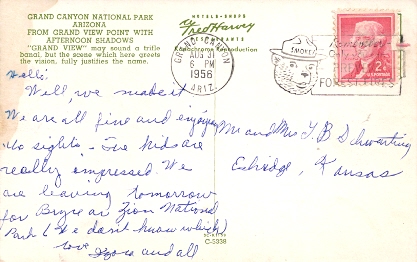 GRAND CANYON NATIONAL PARK
ARIZONA
FROM GRAND VIEW POINT WITH
AFTERNOON SHADOWS
"GRAND VIEW" may sound a trifle
banal, but the scene which here greets
the vision, fully justifies the name.
HOTELS • SHOPS
Fred Harvey
RESTAURANTS
Kodachrome Reproduction
GRAND CANYON
AUG 31
6 PM
1956
ARIZ.
SMOKEY
FOREST FIRES
2¢
Hello!
Well, we made it
We are all fine and enjoying
the sights - The kids are
really impressed. We
are leaving tomorrow
for Bryce or Zion National
Park (We don't know which)
love and all
C-5338
Mr and Mrs T B Schwerting
Eskridge, Kansas